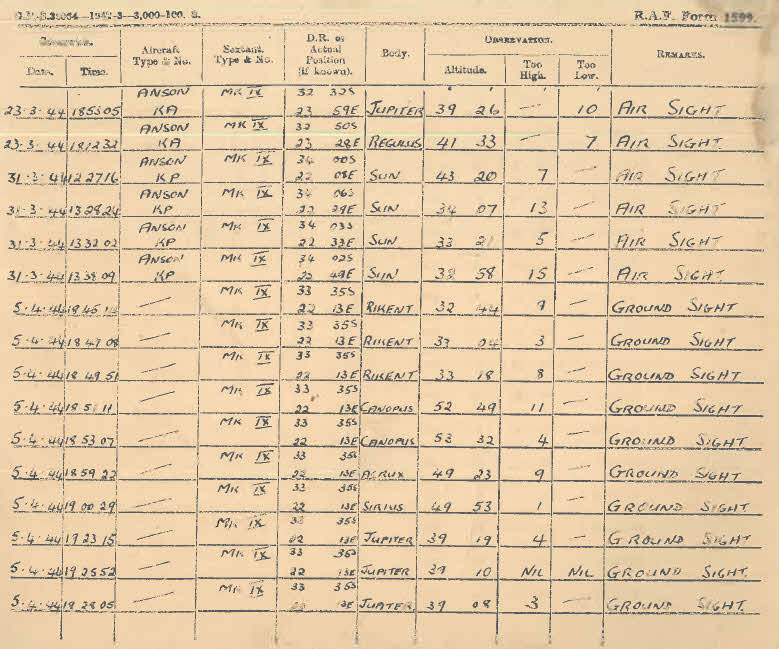 G.P.-S.38064—1942-3—3,000-100. S. R.A.F. Form 1599.
Aircraft Type & No. Sextant. Type & No. D.R. or Actual Position (if known). Body. OBSERVATION. REMARKS.
Date. Time. Altitude. Too High. Too Low.
ANSON MK IX 32 32S
23·3·44 185305 KA 23 59E JUPITER 39 26 — 10 AIR SIGHT
ANSON MK IX 32 50S
23·3·44 181232 KA 23 28E REGULUS 41 33 — 7 AIR SIGHT
ANSON MK IX 34 00S
31·3·44 122716 KP 22 08E SUN 43 20 7 — AIR SIGHT
ANSON MK IX 34 06S
31·3·44 132824 KP 22 29E SUN 34 07 13 — AIR SIGHT
ANSON MK IX 34 03S
31·3·44 133202 KP 22 33E SUN 33 21 5 — AIR SIGHT
ANSON MK IX 34 02S
31·3·44 133809 KP 22 49E SUN 32 58 15 — AIR SIGHT
MK IX 33 35S
5·4·44 18 45 — 22 13E RIKENT 32 44 9 — GROUND SIGHT
MK IX 33 35S
5·4·44 18 47 08 — 22 13E RIKENT 33 04 3 — GROUND SIGHT
MK IX 33 35S
5·4·44 18 49 51 — 22 13E RIKENT 33 18 8 — GROUND SIGHT
MK IX 33 35S
5·4·44 18 51 11 — 22 13E CANOPUS 52 49 11 — GROUND SIGHT
MK IX 33 35S
5·4·44 18 53 07 — 22 13E CANOPUS 53 32 4 — GROUND SIGHT
MK IX 33 35S
5·4·44 18 59 22 — 22 13E ACRUX 49 23 9 — GROUND SIGHT
MK IX 33 35S
5·4·44 19 00 29 — 22 13E SIRIUS 49 53 1 — GROUND SIGHT
MK IX 33 35S
5·4·44 19 23 15 — 22 13E JUPITER 39 19 4 — GROUND SIGHT
MK IX 33 35S
5·4·44 19 25 52 — 22 13E JUPITER 39 10 NIL NIL GROUND SIGHT.
MK IX 33 35S
5·4·44 18 28 05 — 13E JUPITER 39 08 3 — GROUND SIGHT.